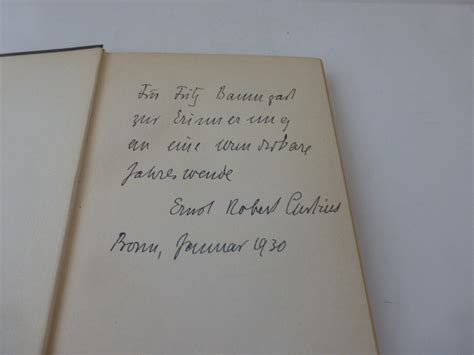 Für Fritz Baumgart
zur Erinnerung
an eine wunderbare
Jahreswende
Ernst Robert Curtius
Bonn, Januar 1930